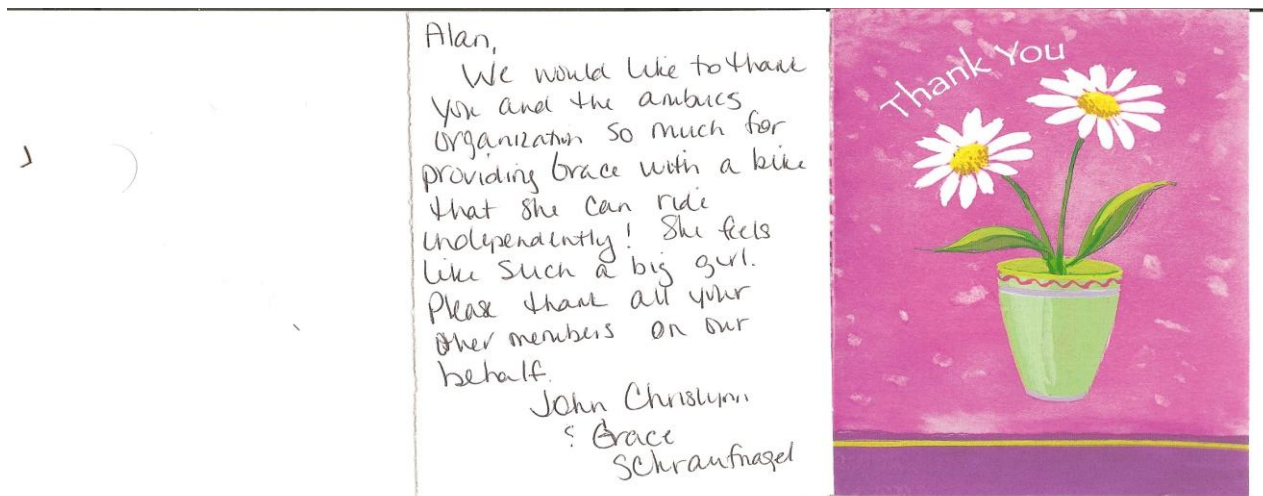 Alan,
We would like to thank
you and the ambucs
organization so much for
providing Grace with a bike
that she can ride
independently! She feels
like such a big girl.
Please thank all your
other members on our
behalf.
John Chrislynn
& Grace
Schraufnagel
Thank You